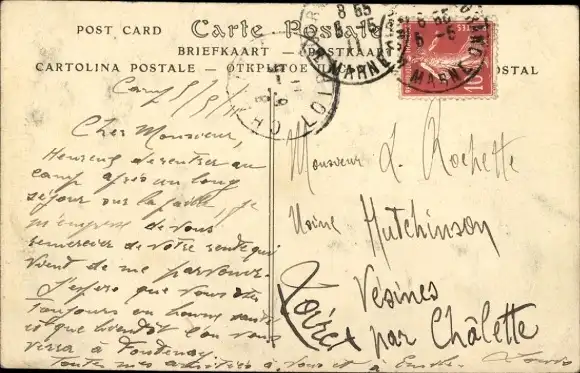 POST CARD
Carte Postale
BRIEFKAART
CARTOLINA POSTALE
8 55
5-5
MARNE
8 55
5-5
MARNE
LOIRET
10
Camp 5/5/11
Cher Monsieur,
Heureux de rentrer au
camp après un long
séjour sur la paille, je
m'empresse de vous
remercier de votre carte qui
vient de me parvenir.
J'espère que vous êtes
toujours en bonne santé
et que bientôt l'on vous
verra à Fontenay.
Toutes mes amitiés à vous et à
Louis
Monsieur L. Rochette
Usine Hutchinson
Vésines
par Châlette
Loiret